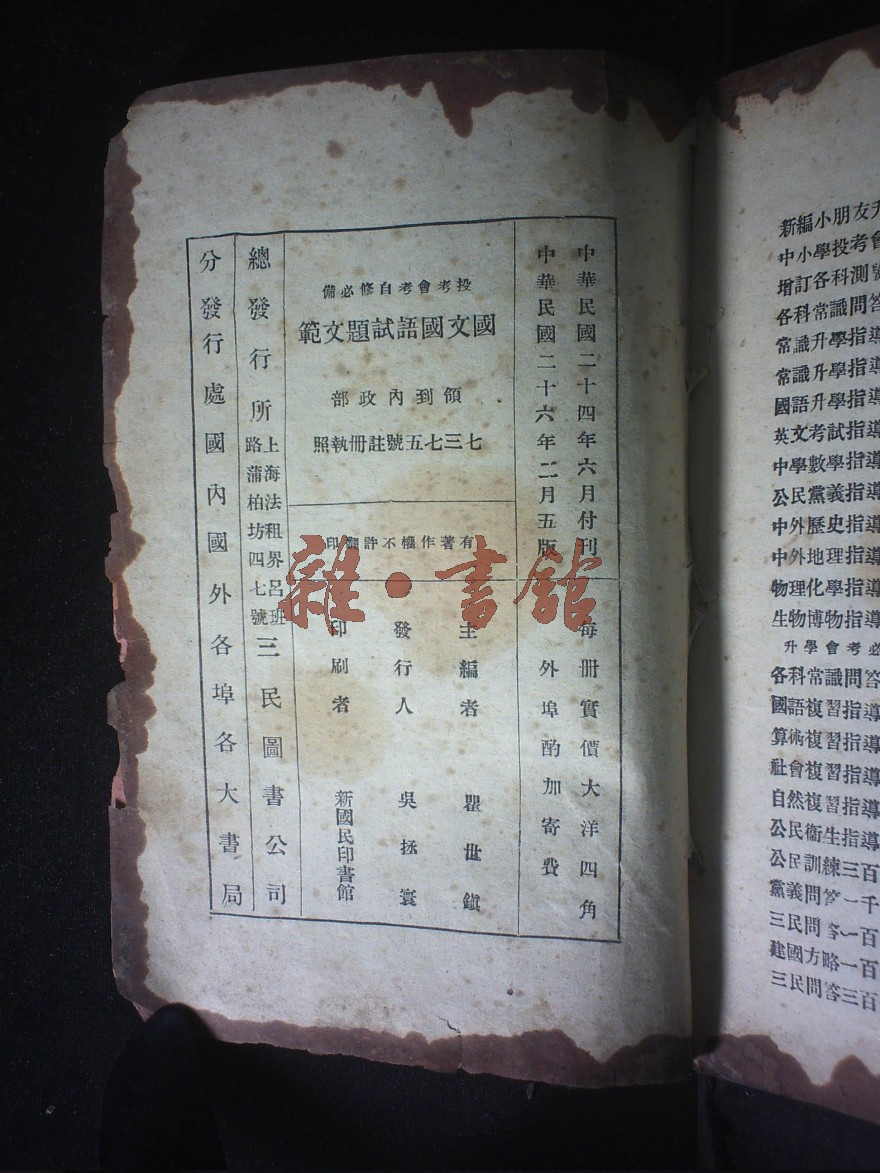 中華民國二十四年六月付刊
中華民國二十六年二月五版
每册實價大洋四角
外埠酌加寄費
投考會考自修必備
國文國語試題文範
領到內政部
七三七五號註册執照
有著作權不許翻印
主編者 瞿世鎮
發行人 吳拯寰
印刷者 新國民印書館
總發行所 上海法租界呂班路蒲柏坊四七號 三民圖書公司
分發行處國內國外各埠各大書局
雜·書館
新編小朋友升
中小學投考會
增訂各科測驗
各科常識問答
常識升學指導
常識升學指導
國語升學指導
英文考試指導
中學數學指導
公民黨義指導
中外歷史指導
中外地理指導
物理化學指導
生物博物指導
升學會考必
各科常識問答
國語複習指導
算術複習指導
社會複習指導
自然複習指導
公民衞生指導
公民訓練三百
黨義問答一千
三民問答一百
建國方略一百
三民問答三百